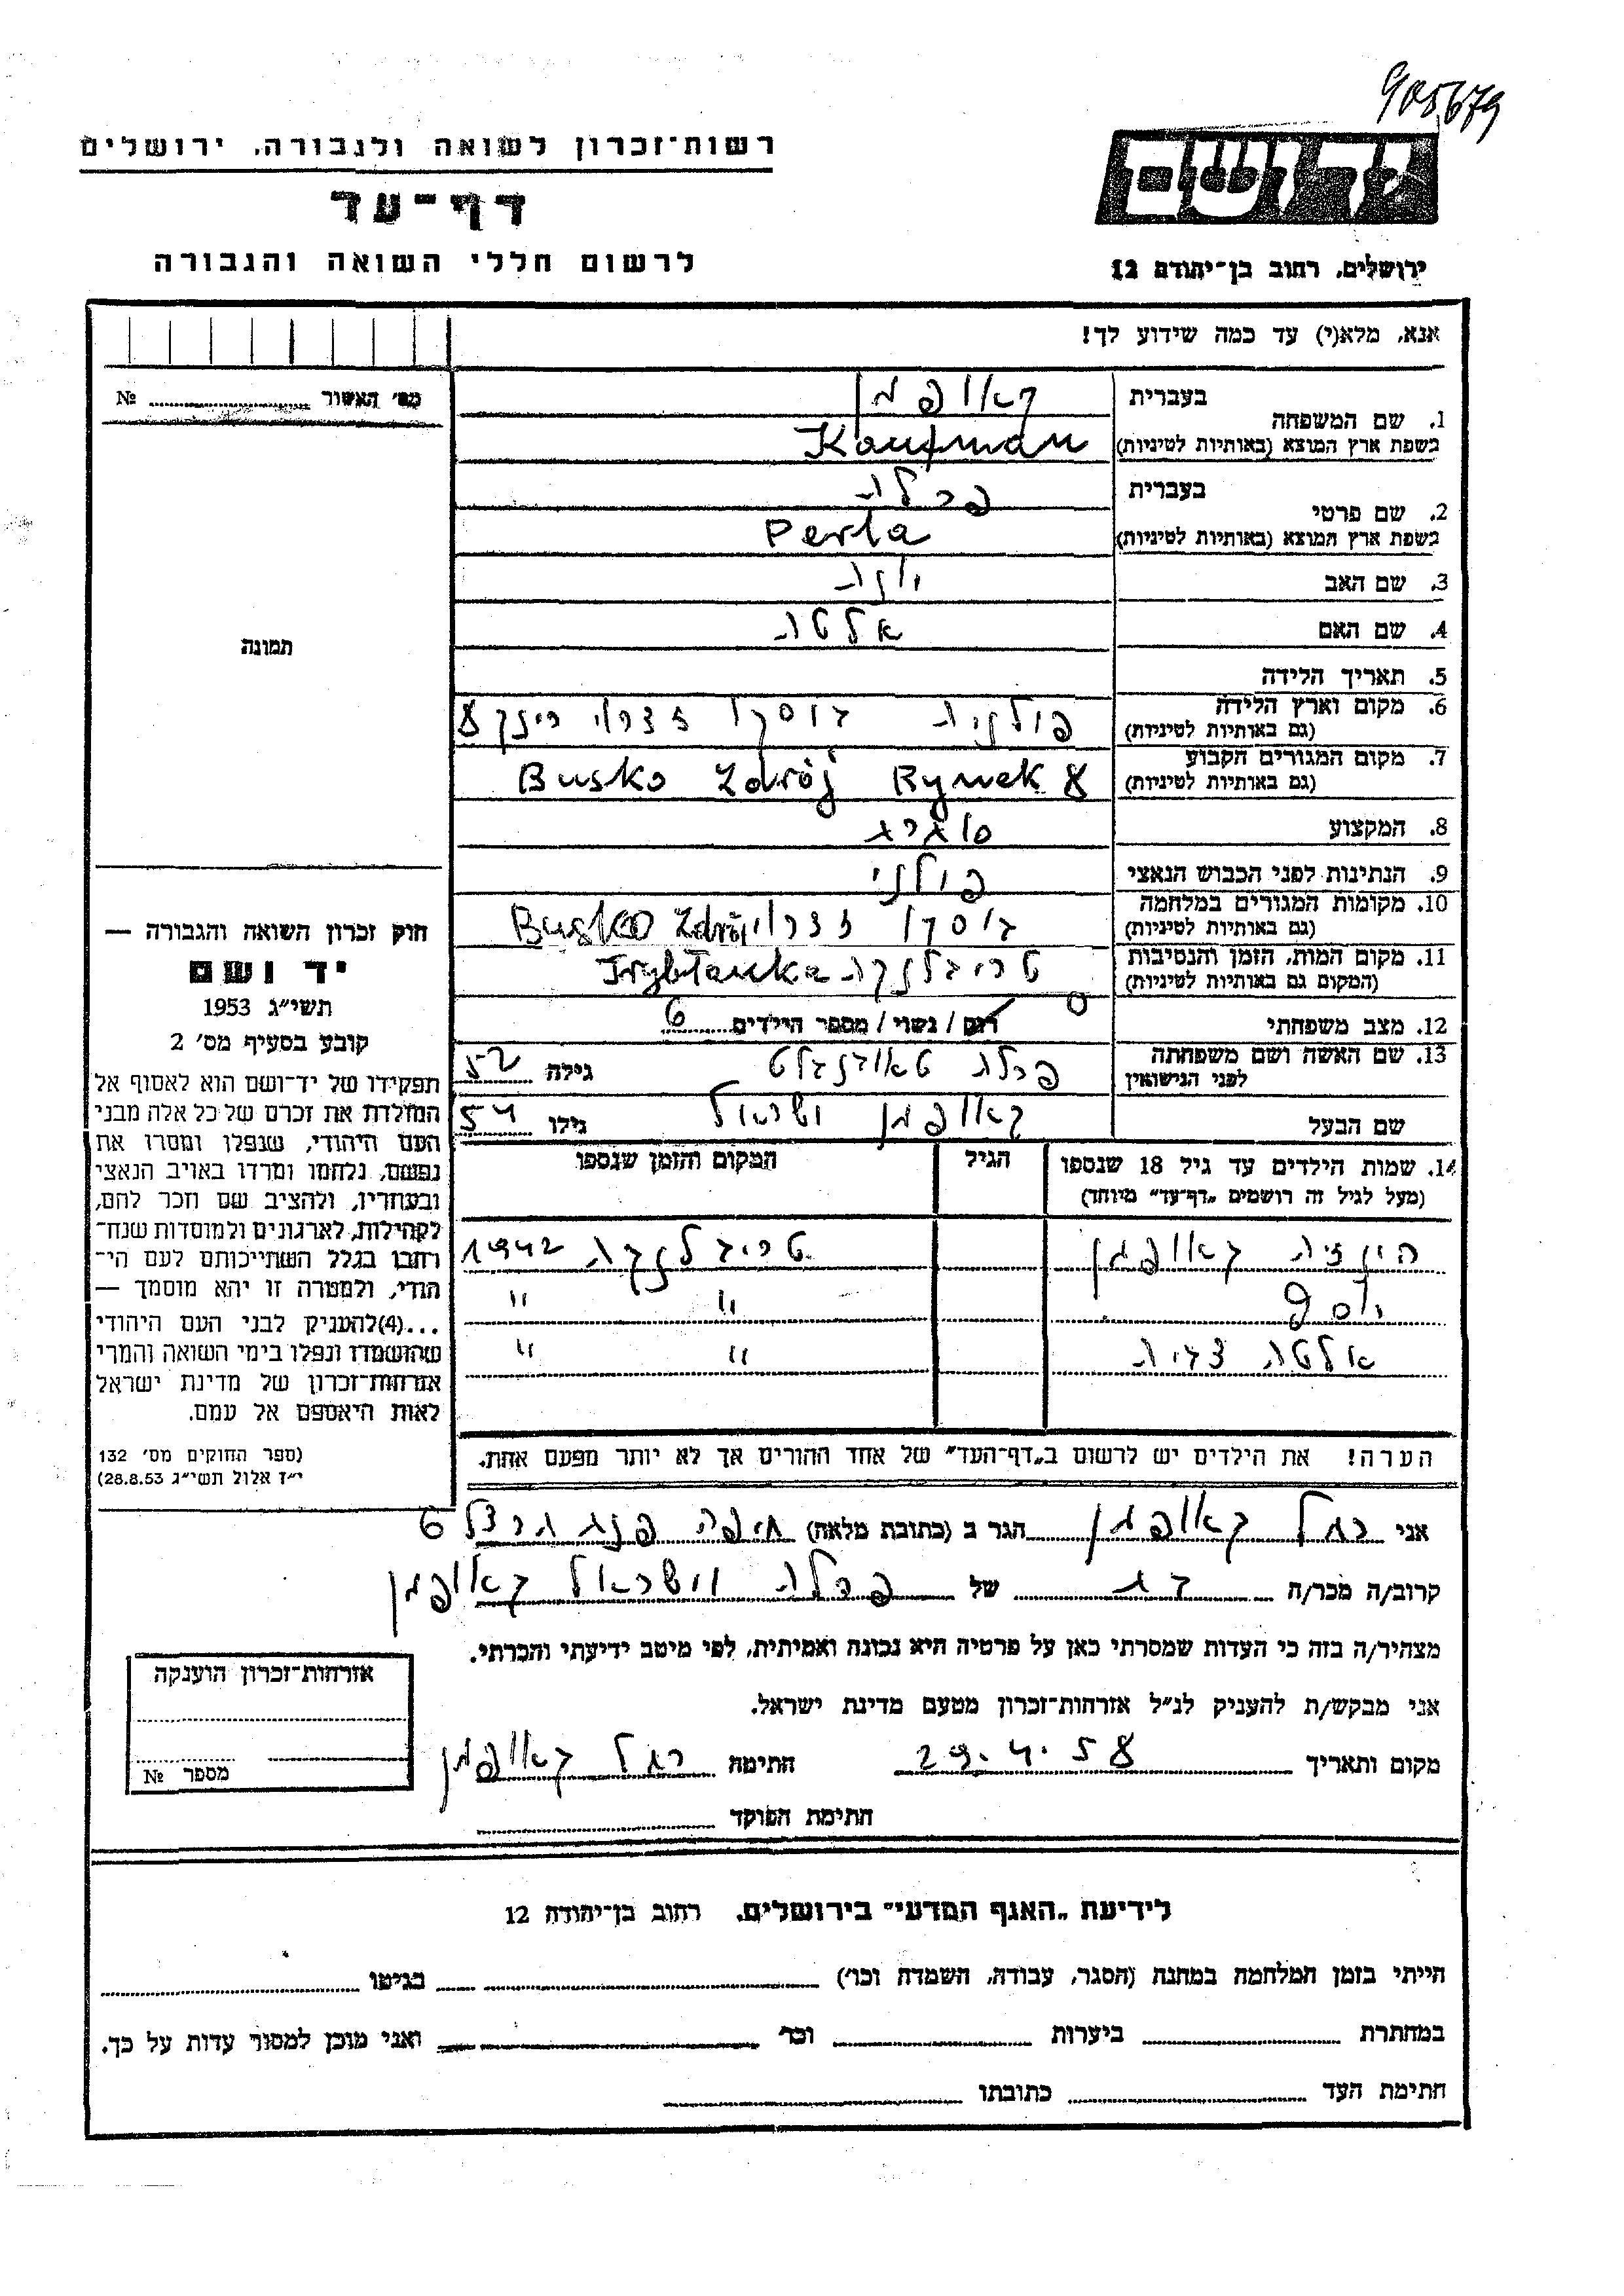 905679
רשות־זכרון לשואה ולגבורה, ירושלים
דף־עד
לרשום חללי השואה והגבורה
ירושלים, רחוב בן־יהודה 12
אנא, מלא(י) עד כמה שידוע לך!
מס׳ האשור № 
1. שם המשפחה
בעברית קאופמן
בשפת ארץ המוצא (באותיות לטיניות) Kaufman
2. שם פרטי
בעברית פרלה
בשפת ארץ המוצא (באותיות לטיניות) Perla
3. שם האב יונה
4. שם האם אלטה
5. תאריך הלידה
6. מקום וארץ הלידה פולניה בוסקו זדרוי רינק 8
(גם באותיות לטיניות)
7. מקום המגורים הקבוע Busko Zdrój Rynek 8
(גם באותיות לטיניות)
8. המקצוע
9. הנתינות לפני הכבוש הנאצי פולני
10. מקומות המגורים במלחמה בוסקו זדרוי Busko Zdrój
(גם באותיות לטיניות)
11. מקום המות, הזמן והנסיבות טריבלנקה Tryblanka
(המקום גם באותיות לטיניות)
12. מצב משפחתי רוק / נשוי / מספר הילדים 6
13. שם האשה ושם משפחתה פרלה גילה 52
לפני הנישואין
שם הבעל קאופמן ישראל גילו 54
14. שמות הילדים עד גיל 18 שנספו הגיל המקום והזמן שנספו
(מעל לגיל זה רושמים „דף־עד” מיוחד)
קאופמן טריבלנקה 1942
יוסף " "
אלטה " "
הערה! את הילדים יש לרשום ב„דף־העד” של אחד ההורים אך לא יותר מפעם אחת.
תמונה
חוק זכרון השואה והגבורה —
יד ושם
תשי״ג 1953
קובע בסעיף מס׳ 2
תפקידו של יד־ושם הוא לאסוף אל
המולדת את זכרם של כל אלה מבני
העם היהודי, שנפלו ומסרו את
נפשם, נלחמו ומרדו באויב הנאצי
ובעוזריו, ולהציב שם וזכר להם,
לקהילות, לארגונים ולמוסדות שנח־
רבו בגלל השתייכותם לעם הי־
הודי, ולמטרה זו יהא מוסמך —
...(4) להעניק לבני העם היהודי
שהושמדו ונפלו בימי השואה והמרי
אזרחות־זכרון של מדינת ישראל
לאות היאספם אל עמם.
(ספר החוקים מס׳ 132
י״ז אלול תשי״ג 28.8.53)
אני רחל קאופמן הגר ב (כתובת מלאה) חיפה
קרוב/ה מכר/ה בת של פרלה וישראל קאופמן
מצהיר/ה בזה כי העדות שמסרתי כאן על פרטיה היא נכונה ואמיתית, לפי מיטב ידיעתי והכרתי.
אני מבקש/ת להעניק לנ״ל אזרחות־זכרון מטעם מדינת ישראל.
מקום ותאריך 29.4.58 חתימה רחל קאופמן
חתימת הפוקד
אזרחות־זכרון הוענקה
מספר №
לידיעת „האגף המדעי” בירושלים, רחוב בן־יהודה 12
הייתי בזמן המלחמה במחנה (הסגר, עבודה, השמדה וכו׳) בגיטו
במחתרת ביערות וכו׳ ואני מוכן למסור עדות על כך.
חתימת העד כתובתו